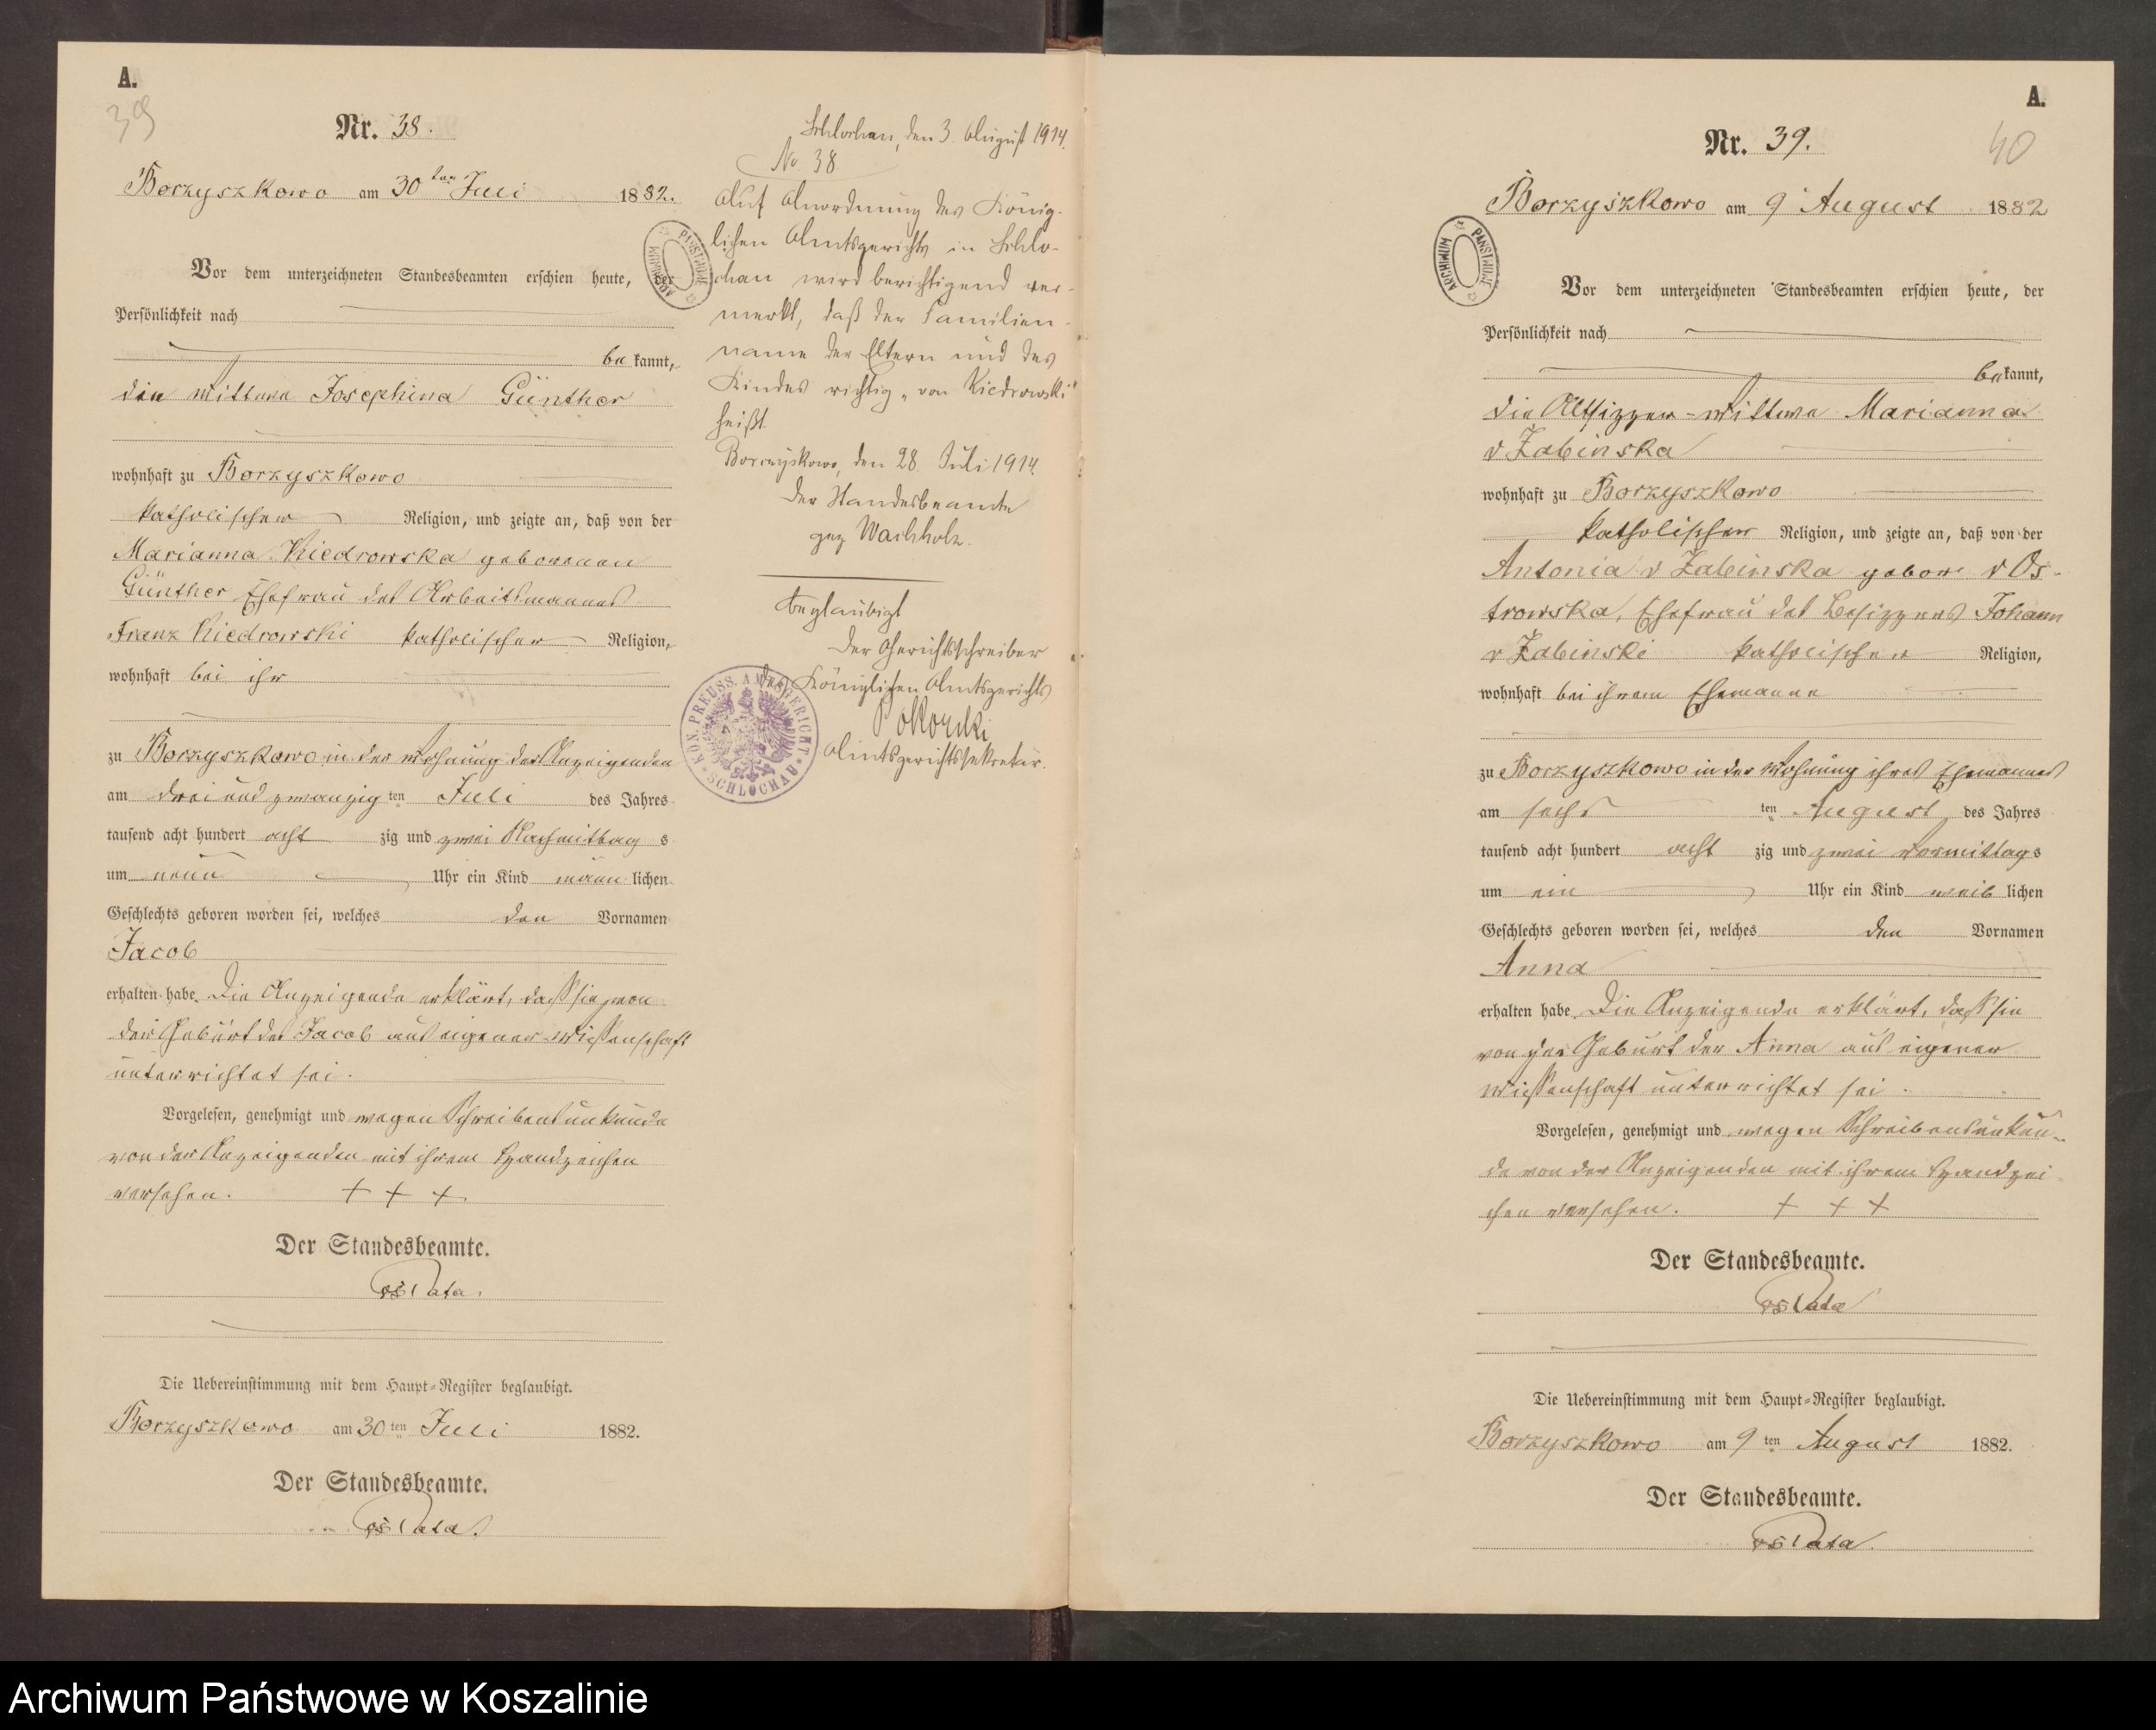 A.
39
Nr. 38.
Borzyszkowo am 30ten Juli 1882.
Vor dem unterzeichneten Standesbeamten erschien heute, der
Persönlichkeit nach
be kannt,
die Wittwe Josephina Günther
wohnhaft zu Borzyszkowo
katholischer Religion, und zeigte an, daß von der
Marianna Kiedrowska geborenen
Günther Ehefrau des Arbeitsmannes
Franz Kiedrowski katholischer Religion,
wohnhaft bei ihr
zu Borzyszkowo in der Wohnung der Anzeigenden
am drei und zwanzig ten Juli des Jahres
tausend acht hundert acht zig und zwei Nachmittag s
um neun Uhr ein Kind männ lichen
Geschlechts geboren worden sei, welches den Vornamen
Jacob
erhalten habe. Die Anzeigende erklärt, daß sie von
der Geburt des Jacob aus eigener Wissenschaft
unterrichtet sei.
Vorgelesen, genehmigt und wegen Schreibensunkunde
von der Anzeigenden mit ihrem Handzeichen
versehen. + + +
Der Standesbeamte.
Die Uebereinstimmung mit dem Haupt-Register beglaubigt.
Borzyszkowo am 30 ten Juli 1882.
Der Standesbeamte.
Schlochau, den 3. August 1914.
No. 38
Auf Anordnung des König-
lichen Amtsgerichts in Schlo-
chau wird berichtigend ver-
merkt, daß der Familien-
name der Eltern und des
Kindes richtig „von Kiedrowski"
heißt.
Borzyskowo, den 28. Juli 1914.
Der Standesbeamte
gez Wachholz.
Beglaubigt
Der Gerichtsschreiber
des Königlichen Amtsgerichts
Amtsgerichtssekretär.
KÖN. PREUSS. AMTSGERICHT * SCHLOCHAU *
ARCHIWUM PAŃSTWOWE
A.
40
Nr. 39.
Borzyszkowo am 9 August 1882
ARCHIWUM PAŃSTWOWE
Vor dem unterzeichneten Standesbeamten erschien heute, der
Persönlichkeit nach
be kannt,
die Altsizzer-Wittwe Marianna
v Zabinska
wohnhaft zu Borzyszkowo
katholischer Religion, und zeigte an, daß von der
Antonia v Zabinska gebore v Os-
trowska, Ehefrau des Besizzers Johann
v Zabinski katholischer Religion,
wohnhaft bei ihrem Ehemanne
zu Borzyszkowo in der Wohnung ihres Ehemannes
am sechs ten August des Jahres
tausend acht hundert acht zig und zwei Vormittags
um ein Uhr ein Kind weib lichen
Geschlechts geboren worden sei, welches den Vornamen
Anna
erhalten habe. Die Anzeigende erklärt, daß sie
von der Geburt der Anna aus eigener
Wissenschaft unterrichtet sei.
Vorgelesen, genehmigt und wegen Schreibensunkun-
de von der Anzeigenden mit ihrem Handzei
chen versehen. + + +
Der Standesbeamte.
Die Uebereinstimmung mit dem Haupt-Register beglaubigt.
Borzyszkowo am 9 ten August 1882.
Der Standesbeamte.
Archiwum Państwowe w Koszalinie